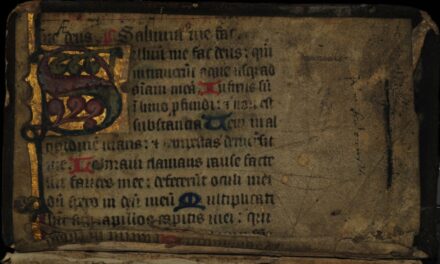 deus Saluum me fac
aluum me fac deus: qm̄
intrauerūt aque usq ad
aīam meā Infixus sū
ī limo profundi: ⁊ non est
substantia Veni in al
titudinē maris: ⁊ tempestas demersit
me Laboraui clamans rauce facte
sūt fauces mee: defecerūt oculi mei
dū spero in dm̄ meū Multiplicati
sūt capillos capitis mei: qui